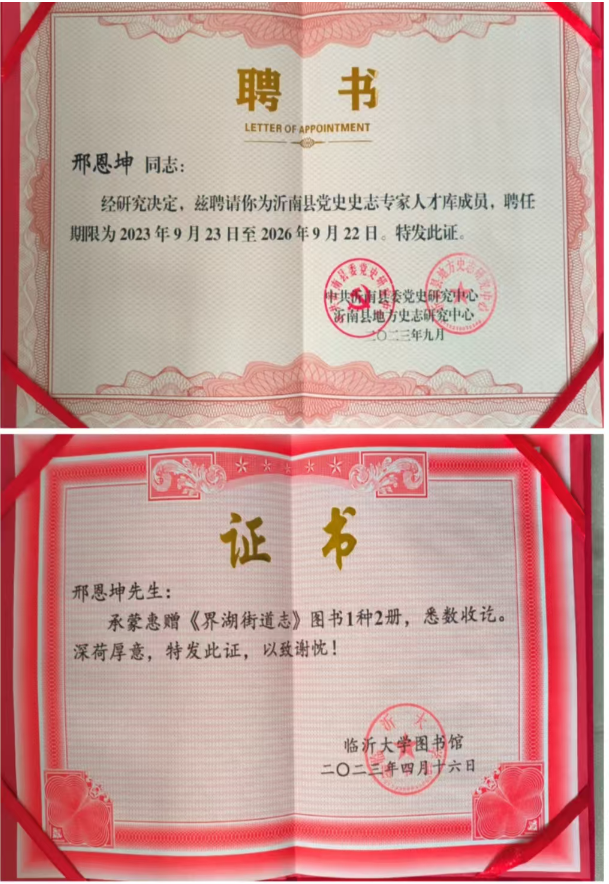 聘书
LETTER OF APPOINTMENT
邢恩坤 同志：
经研究决定，兹聘请你为沂南县党史史志专家人才库成员，聘任
期限为2023年9月23日至2026年9月22日。特发此证。
中共沂南县委党史研究中心
沂南县地方史志研究中心
二〇二三年九月
证书
邢恩坤先生：
承蒙惠赠《界湖街道志》图书1种2册，悉数收讫。
深荷厚意，特发此证，以致谢忱！
临沂大学图书馆
二〇二三年四月十六日